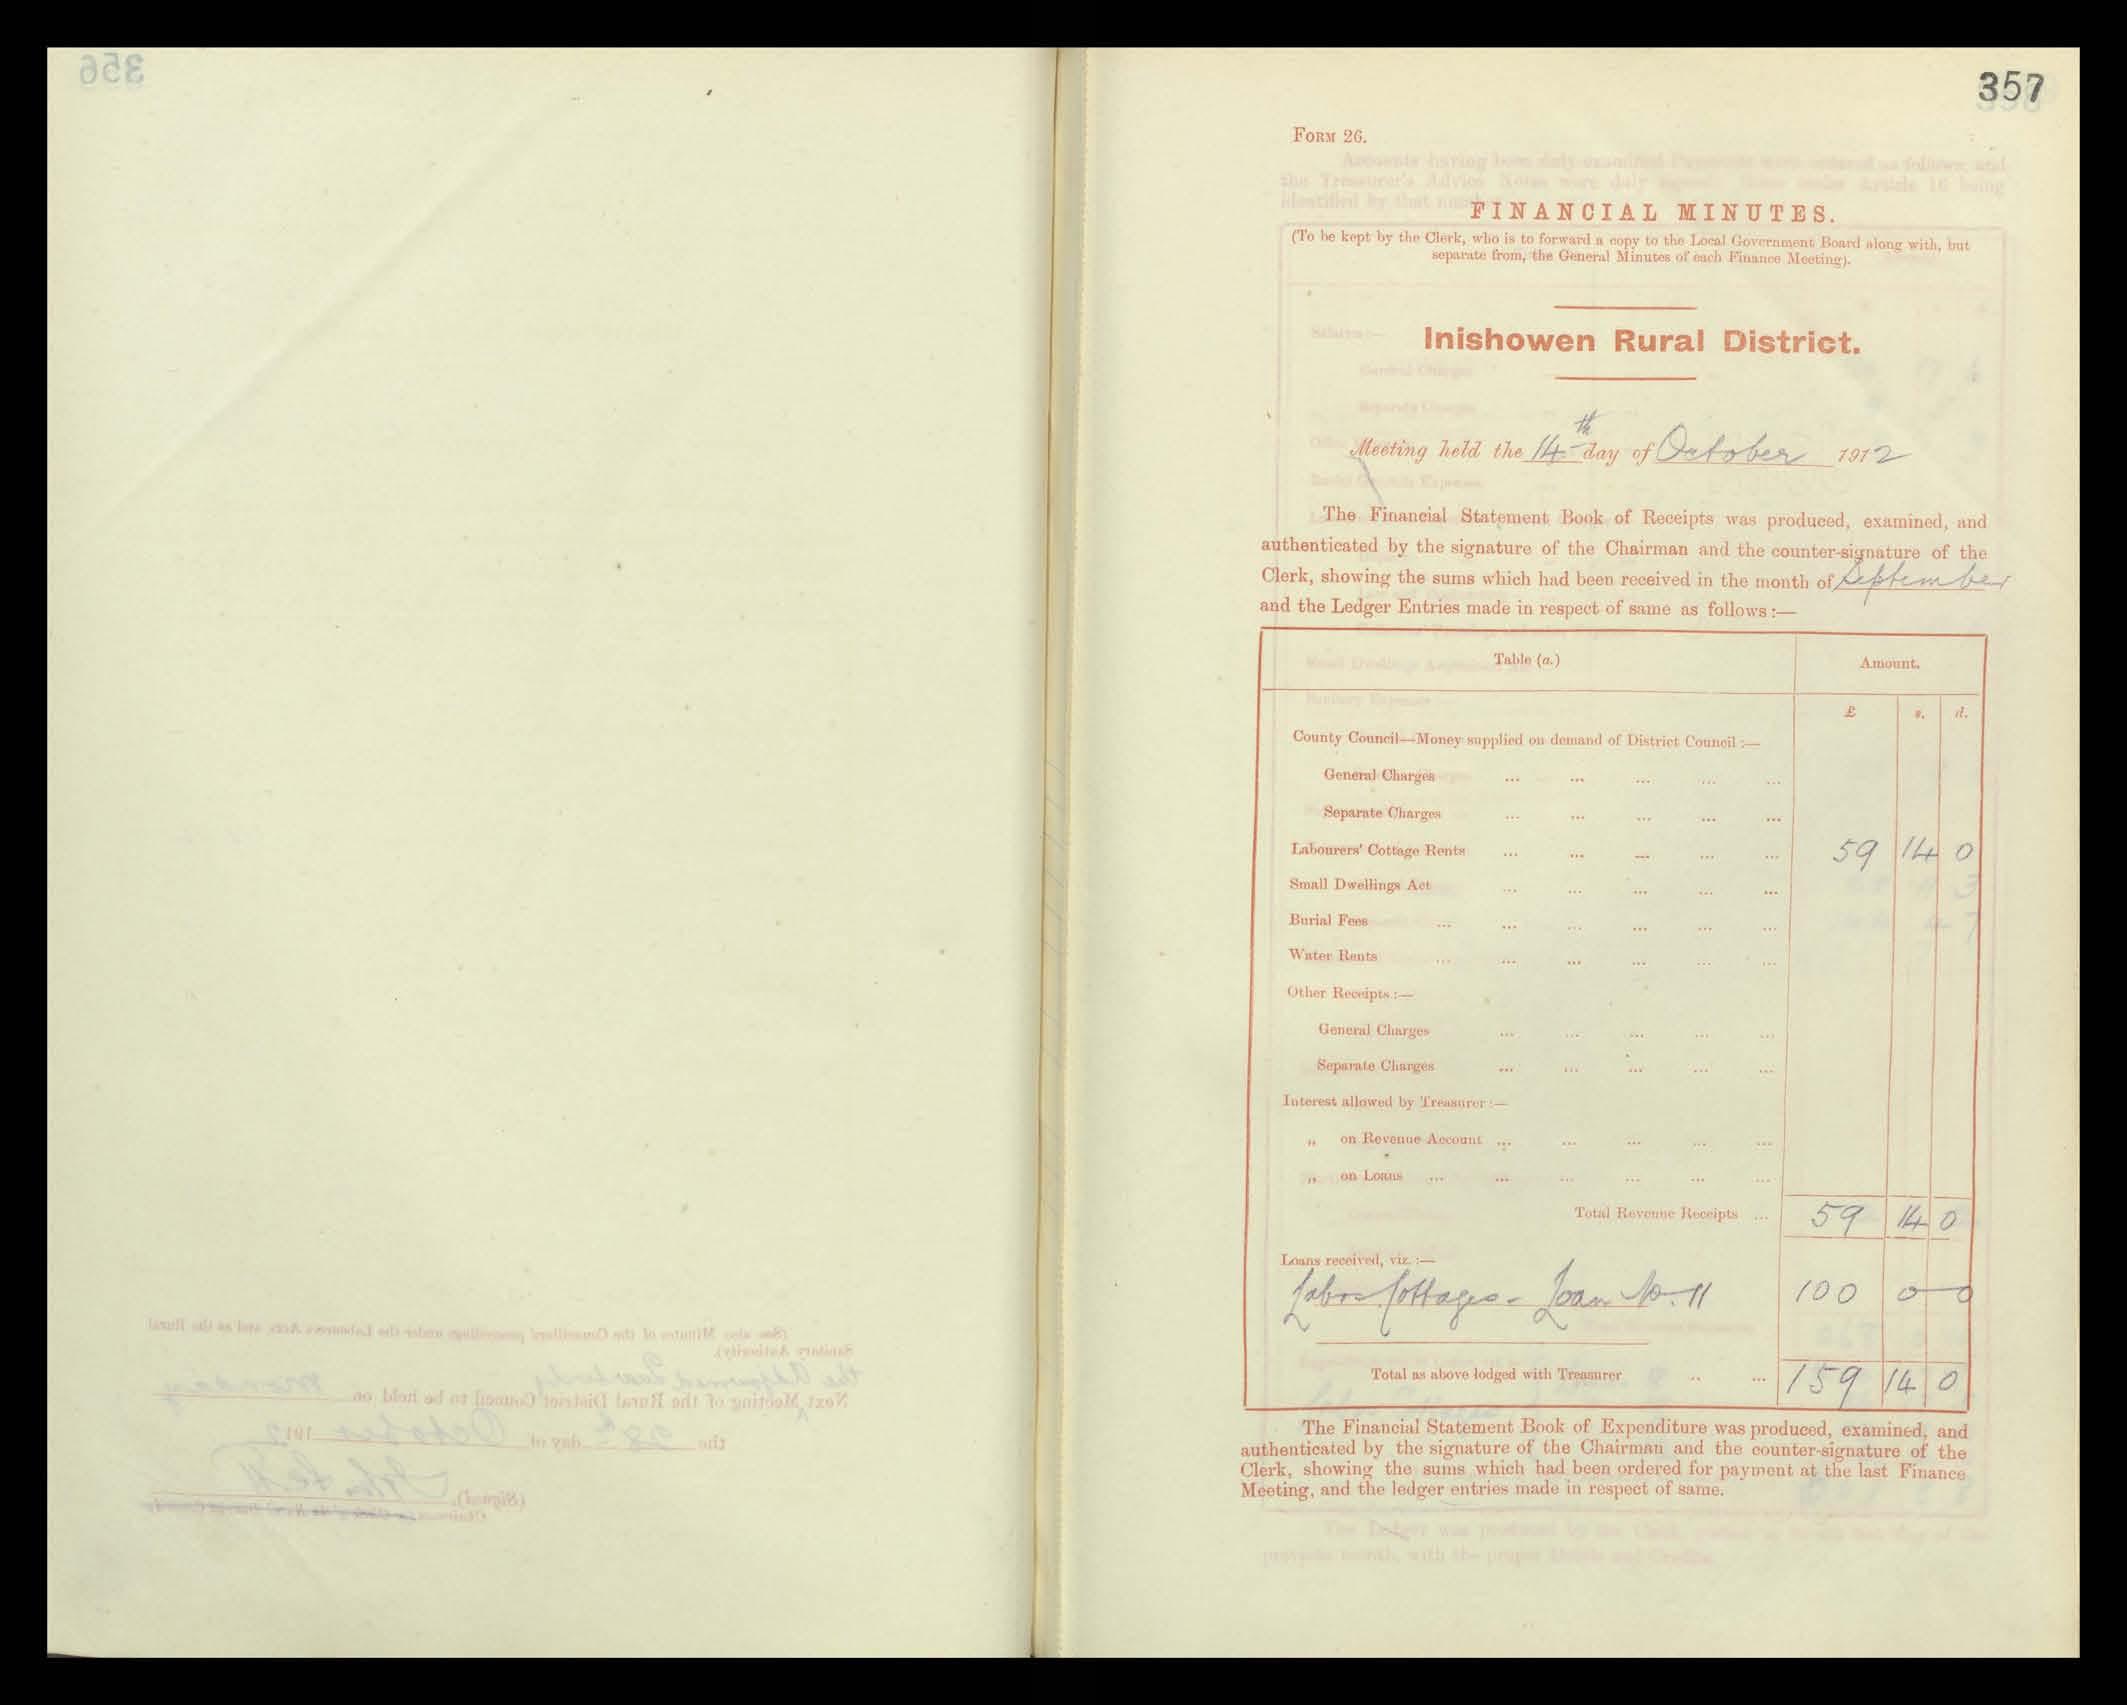 357
FORM 26.
FINANCIAL MINUTES.
(To be kept by the Clerk, who is to forward a copy to the Local Government Board along with, but
separate from, the General Minutes of each Finance Meeting).
Inishowen Rural District.
Meeting held the 14th day of October 1912
The Financial Statement Book of Receipts was produced, examined, and
authenticated by the signature of the Chairman and the counter-signature of the
Clerk, showing the sums which had been received in the month of September
and the Ledger Entries made in respect of same as follows:—
Table (a.) Amount.
£ s. d.
County Council—Money supplied on demand of District Council :—
General Charges ... ... ... ... ...
Separate Charges ... ... ... ... ...
Labourers' Cottage Rents ... ... ... ... ... 59 14 0
Small Dwellings Act ... ... ... ... ...
Burial Fees ... ... ... ... ... ...
Water Rents ... ... ... ... ... ...
Other Receipts :—
General Charges ... ... ... ... ...
Separate Charges ... ... ... ... ...
Interest allowed by Treasurer :—
„ on Revenue Account ... ... ... ... ...
„ on Loans ... ... ... ... ... ...
Total Revenue Receipts ... 59 14 0
Loans received, viz. :—
Labrs Cottages - Loan No. 11 100 0 0
Total as above lodged with Treasurer .. ... 159 14 0
The Financial Statement Book of Expenditure was produced, examined, and
authenticated by the signature of the Chairman and the counter-signature of the
Clerk, showing the sums which had been ordered for payment at the last Finance
Meeting, and the ledger entries made in respect of same.